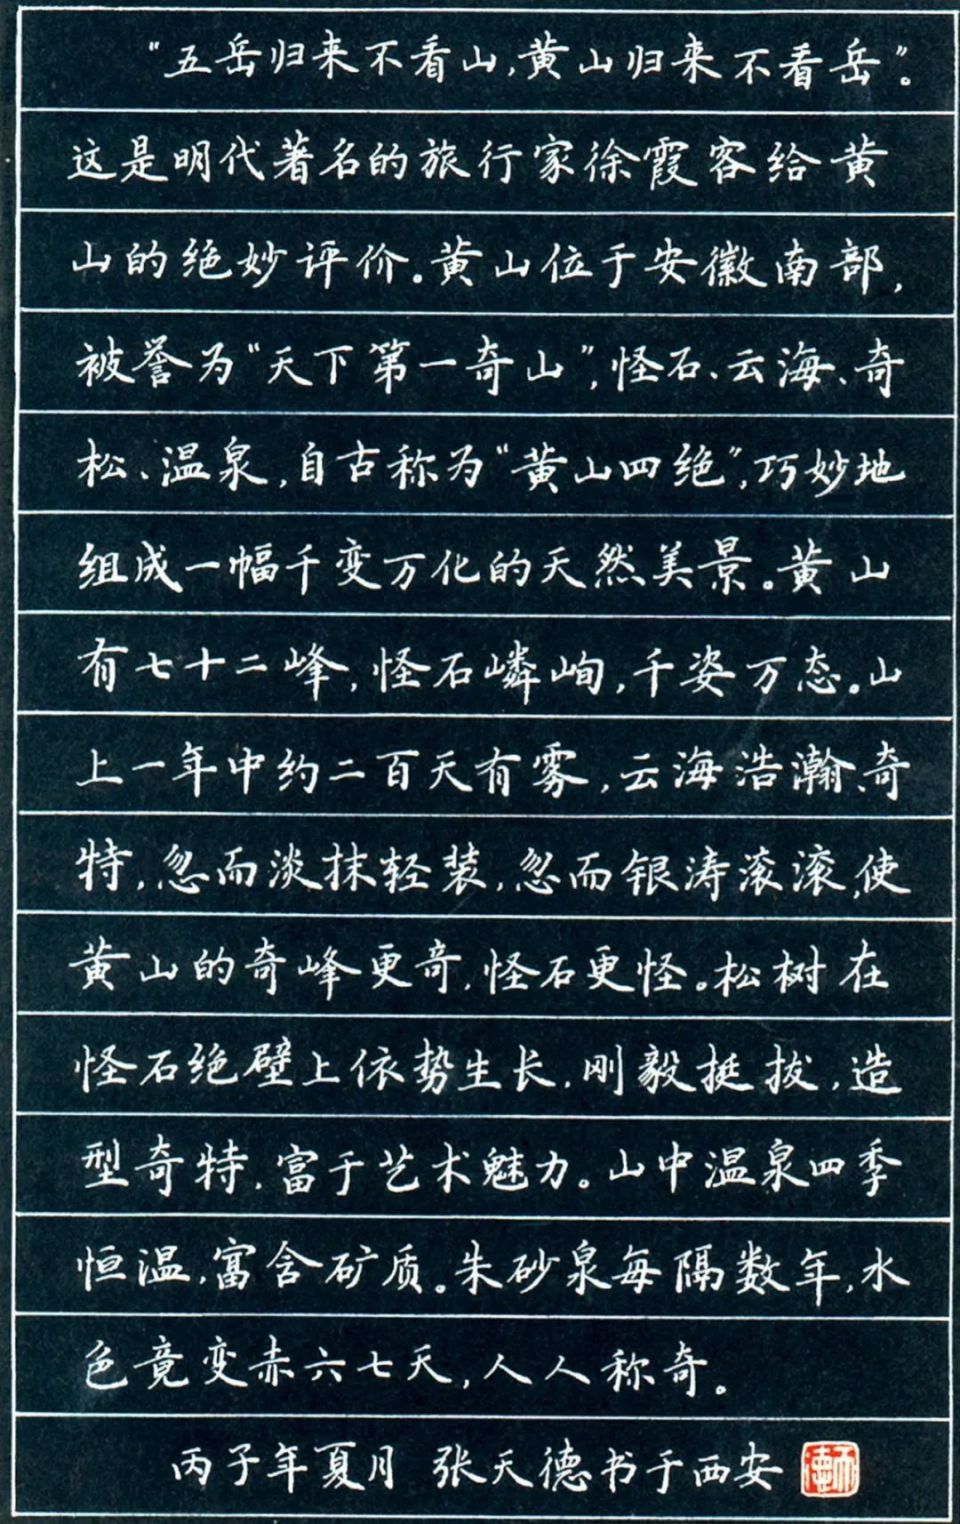 “五岳归来不看山，黄山归来不看岳”。
这是明代著名的旅行家徐霞客给黄
山的绝妙评价。黄山位于安徽南部，
被誉为“天下第一奇山”，怪石、云海、奇
松、温泉，自古称为“黄山四绝”，巧妙地
组成一幅千变万化的天然美景。黄山
有七十二峰，怪石嶙峋，千姿万态。山
上一年中约二百天有雾，云海浩瀚、奇
特，忽而淡抹轻装，忽而银涛滚滚，使
黄山的奇峰更奇，怪石更怪。松树在
怪石绝壁上依势生长，刚毅挺拔，造
型奇特，富于艺术魅力。山中温泉四季
恒温，富含矿质。朱砂泉每隔数年，水
色竟变赤六七天，人人称奇。
丙子年夏月 张天德书于西安
天德